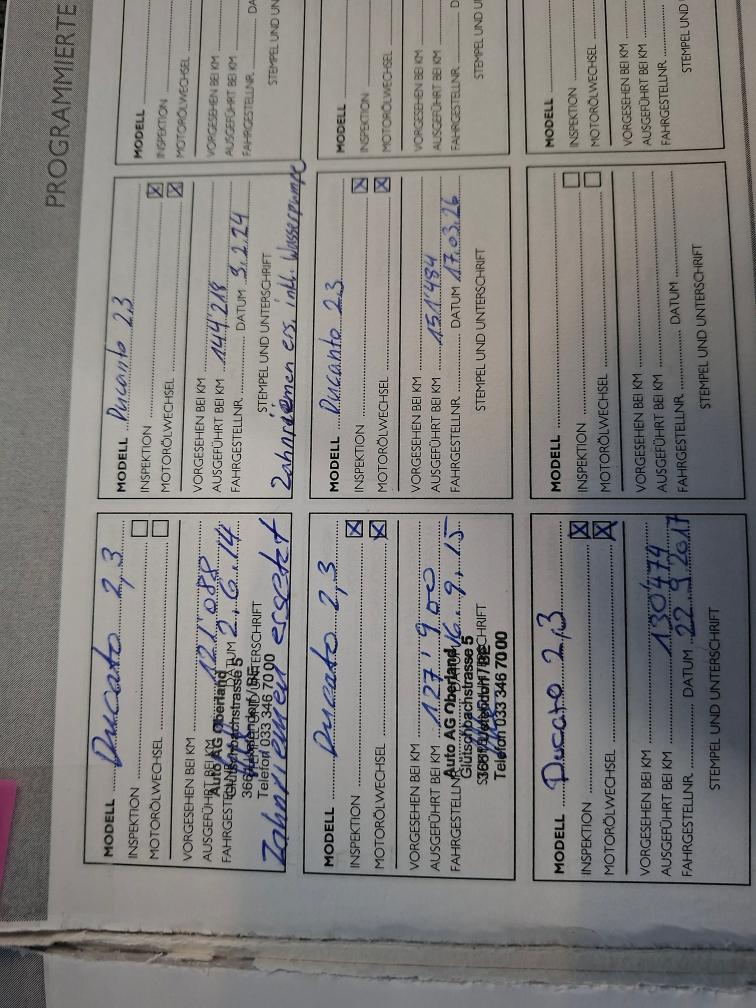 PROGRAMMIERTE
MODELL Ducato 2,3
INSPEKTION
MOTORÖLWECHSEL
VORGESEHEN BEI KM
AUSGEFÜHRT BEI KM 121'088
FAHRGESTELLNR. DATUM 2.6.14
STEMPEL UND UNTERSCHRIFT
Auto AG Oberland
Glütschbachstrasse 5
Telefon 033 346 70 00
Zahnriemen ersetzt
MODELL Ducato 2,3
INSPEKTION
MOTORÖLWECHSEL
VORGESEHEN BEI KM
AUSGEFÜHRT BEI KM 127'900
FAHRGESTELLNR. 16.9.15
Auto AG Oberland
Glütschbachstrasse 5
Telefon 033 346 70 00
MODELL Ducato 2,3
INSPEKTION
MOTORÖLWECHSEL
VORGESEHEN BEI KM
AUSGEFÜHRT BEI KM 130'474
FAHRGESTELLNR. DATUM 22.9.2017
STEMPEL UND UNTERSCHRIFT
MODELL Ducanto 2,3
INSPEKTION
MOTORÖLWECHSEL
VORGESEHEN BEI KM
AUSGEFÜHRT BEI KM 144'218
FAHRGESTELLNR. DATUM 9.2.24
STEMPEL UND UNTERSCHRIFT
Zahnriemen ers. inkl. Wasserpumpe
MODELL Ducanto 2,3
INSPEKTION
MOTORÖLWECHSEL
VORGESEHEN BEI KM
AUSGEFÜHRT BEI KM 151'484
FAHRGESTELLNR. DATUM 17.03.26
STEMPEL UND UNTERSCHRIFT
MODELL
INSPEKTION
MOTORÖLWECHSEL
VORGESEHEN BEI KM
AUSGEFÜHRT BEI KM
FAHRGESTELLNR. DATUM
STEMPEL UND UNTERSCHRIFT
MODELL
INSPEKTION
MOTORÖLWECHSEL
VORGESEHEN BEI KM
AUSGEFÜHRT BEI KM
FAHRGESTELLNR. DA
STEMPEL UND UN
MODELL
INSPEKTION
MOTORÖLWECHSEL
VORGESEHEN BEI KM
AUSGEFÜHRT BEI KM
FAHRGESTELLNR. D
STEMPEL UND U
MODELL
INSPEKTION
MOTORÖLWECHSEL
VORGESEHEN BEI KM
AUSGEFÜHRT BEI KM
FAHRGESTELLNR.
STEMPEL UND